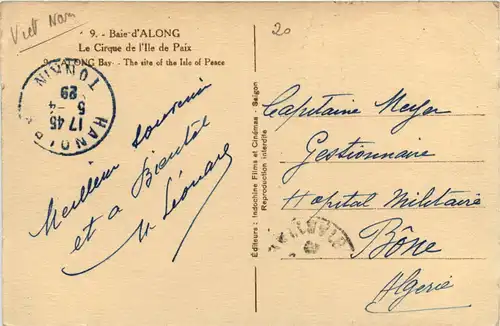 Viet Nam
20
9. - Baie d'ALONG
Le Cirque de l'Ile de Paix
9. - ALONG Bay. - The site of the Isle of Peace
HANOI
TONKIN
17 45
5 - 4
29
Meilleur souvenir
et a Bientôt
M Léonard
Editeurs : Indochine Films et Cinémas - Saïgon
Reproduction interdite
Capitaine Meyer
Gestionnaire
Hopital Militaire
Bône
Algerie